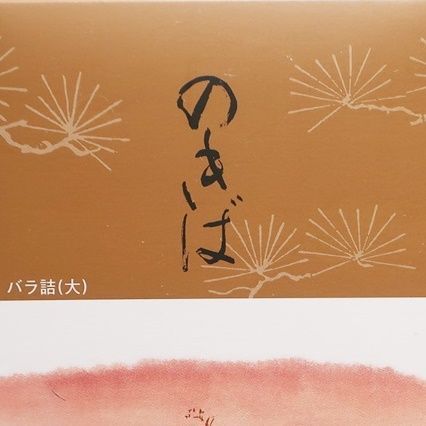 のきば
バラ詰(大)